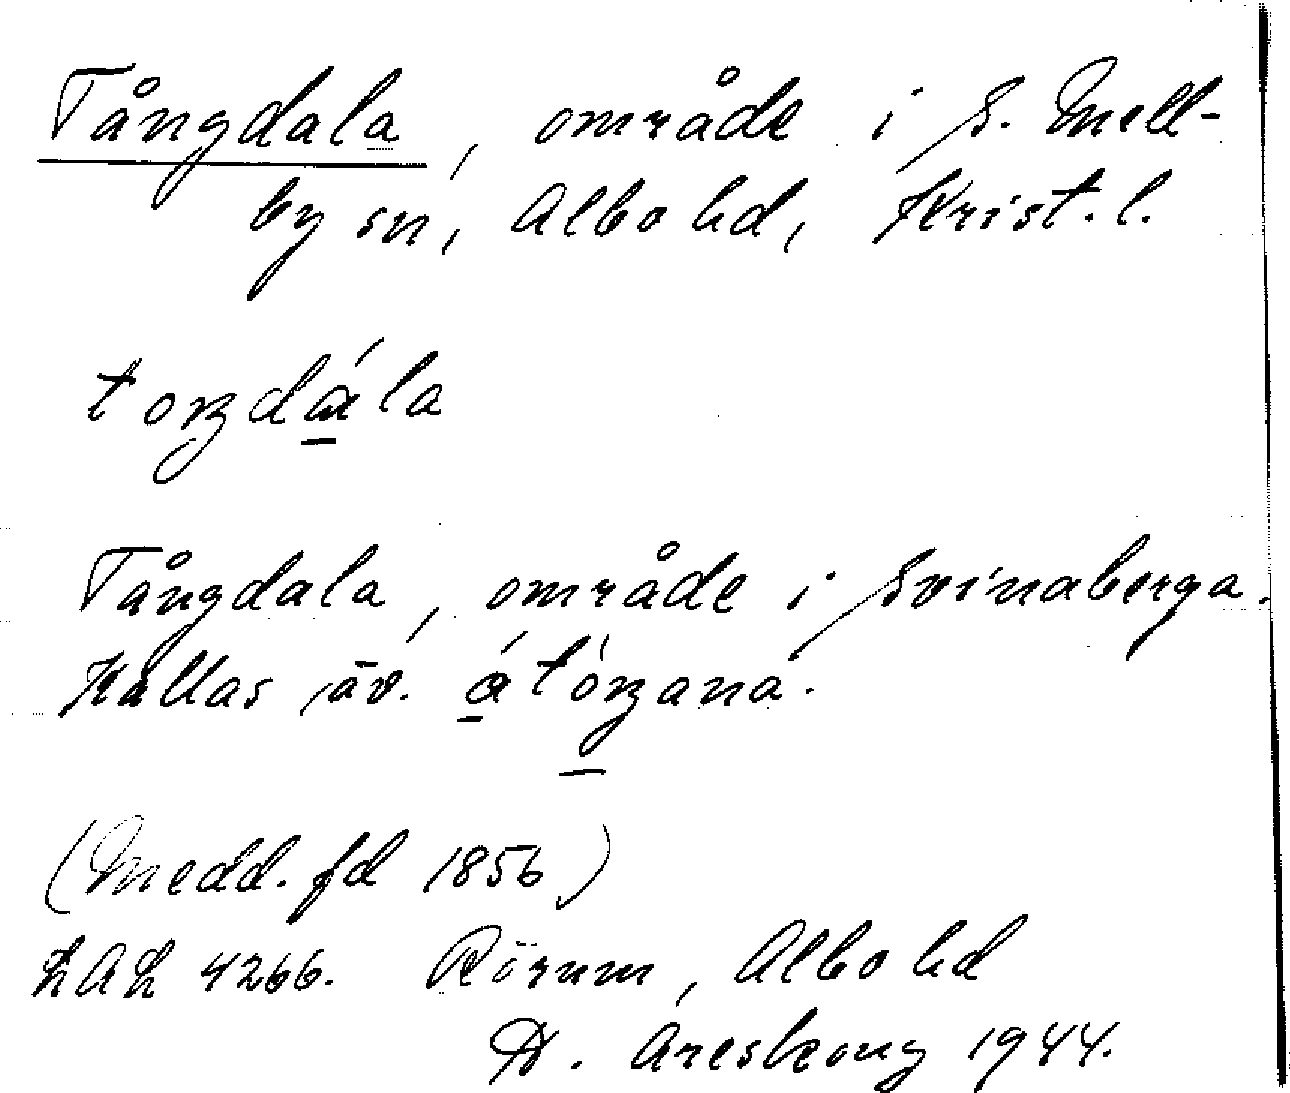 Tångdala, område i S. Mell-
by sn, Albo hd, Krist. l.
toŋdála
Tångdala, område i Svinaberga.
Kallas äv. átóŋana.
(Medd. fd 1856)
LAL 4266. Rörum, Albo hd
D. Areskoug 1944.